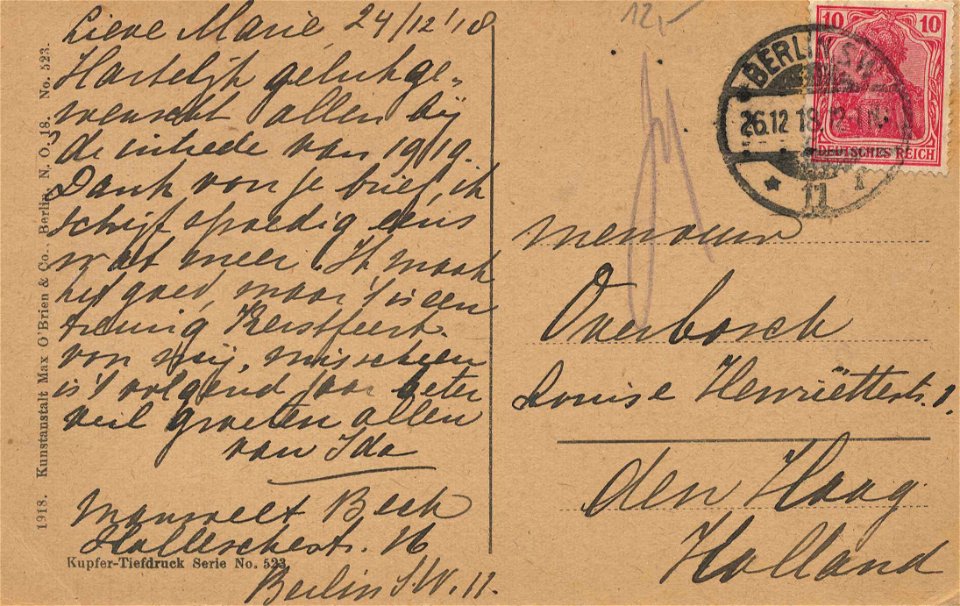 Lieve Marie 24/12/18
Hartelijk gelukge-
wenscht allen bij
de intrede van 1919.
Dank von je brief ik
schrijf spoedig eens
wat meer. Ik maak
het goed, maar 't is een
treurig Kerstfeest
von mij, misscheen
is 't volgend jaar beter
veil groeten allen
van Ida
Beck
Halleschestr. 16
Berlin S.W. 11.
Kupfer-Tiefdruck Serie No. 523.
1918. Kunstanstalt Max O'Brien & Co., Berlin, N. O. 18. No. 523.
12,-
10 10
DEUTSCHES REICH
BERLIN S.W.
26.12.18.12-1 N.
* 11 r
mevrouw
Overbosch
Louise Henriëttestr. 1.
den Haag
Holland